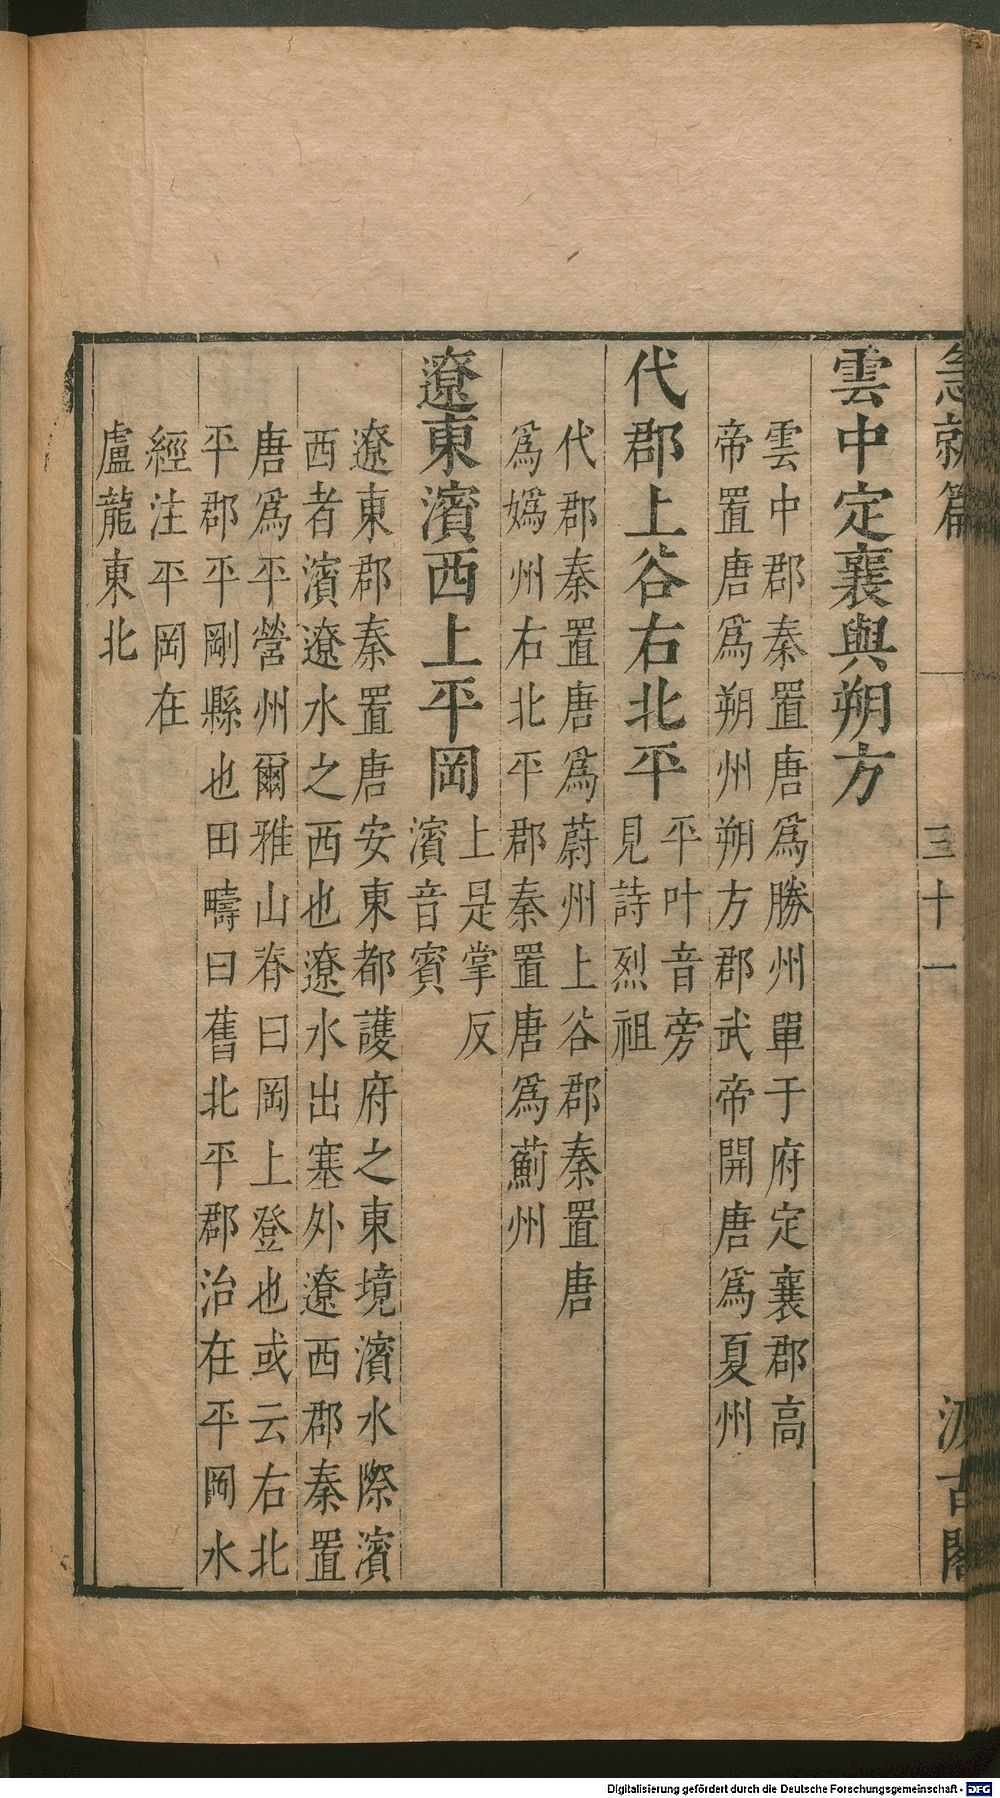 急就篇 三十一 汲古閣
雲中定襄與朔方
雲中郡秦置唐爲勝州單于府定襄郡高
帝置唐爲朔州朔方郡武帝開唐爲夏州
代郡上谷右北平
平叶音旁
見詩烈祖
代郡秦置唐爲蔚州上谷郡秦置唐
爲嬀州右北平郡秦置唐爲薊州
遼東濱西上平岡
上是掌反
濱音賓
遼東郡秦置唐安東都護府之東境濱水際濱
西者濱遼水之西也遼水出塞外遼西郡秦置
唐爲平營州爾雅山脊曰岡上登也或云右北
平郡平剛縣也田疇曰舊北平郡治在平岡水
經注平岡在
盧龍東北
Digitalisierung gefördert durch die Deutsche Forschungsgemeinschaft - DFG